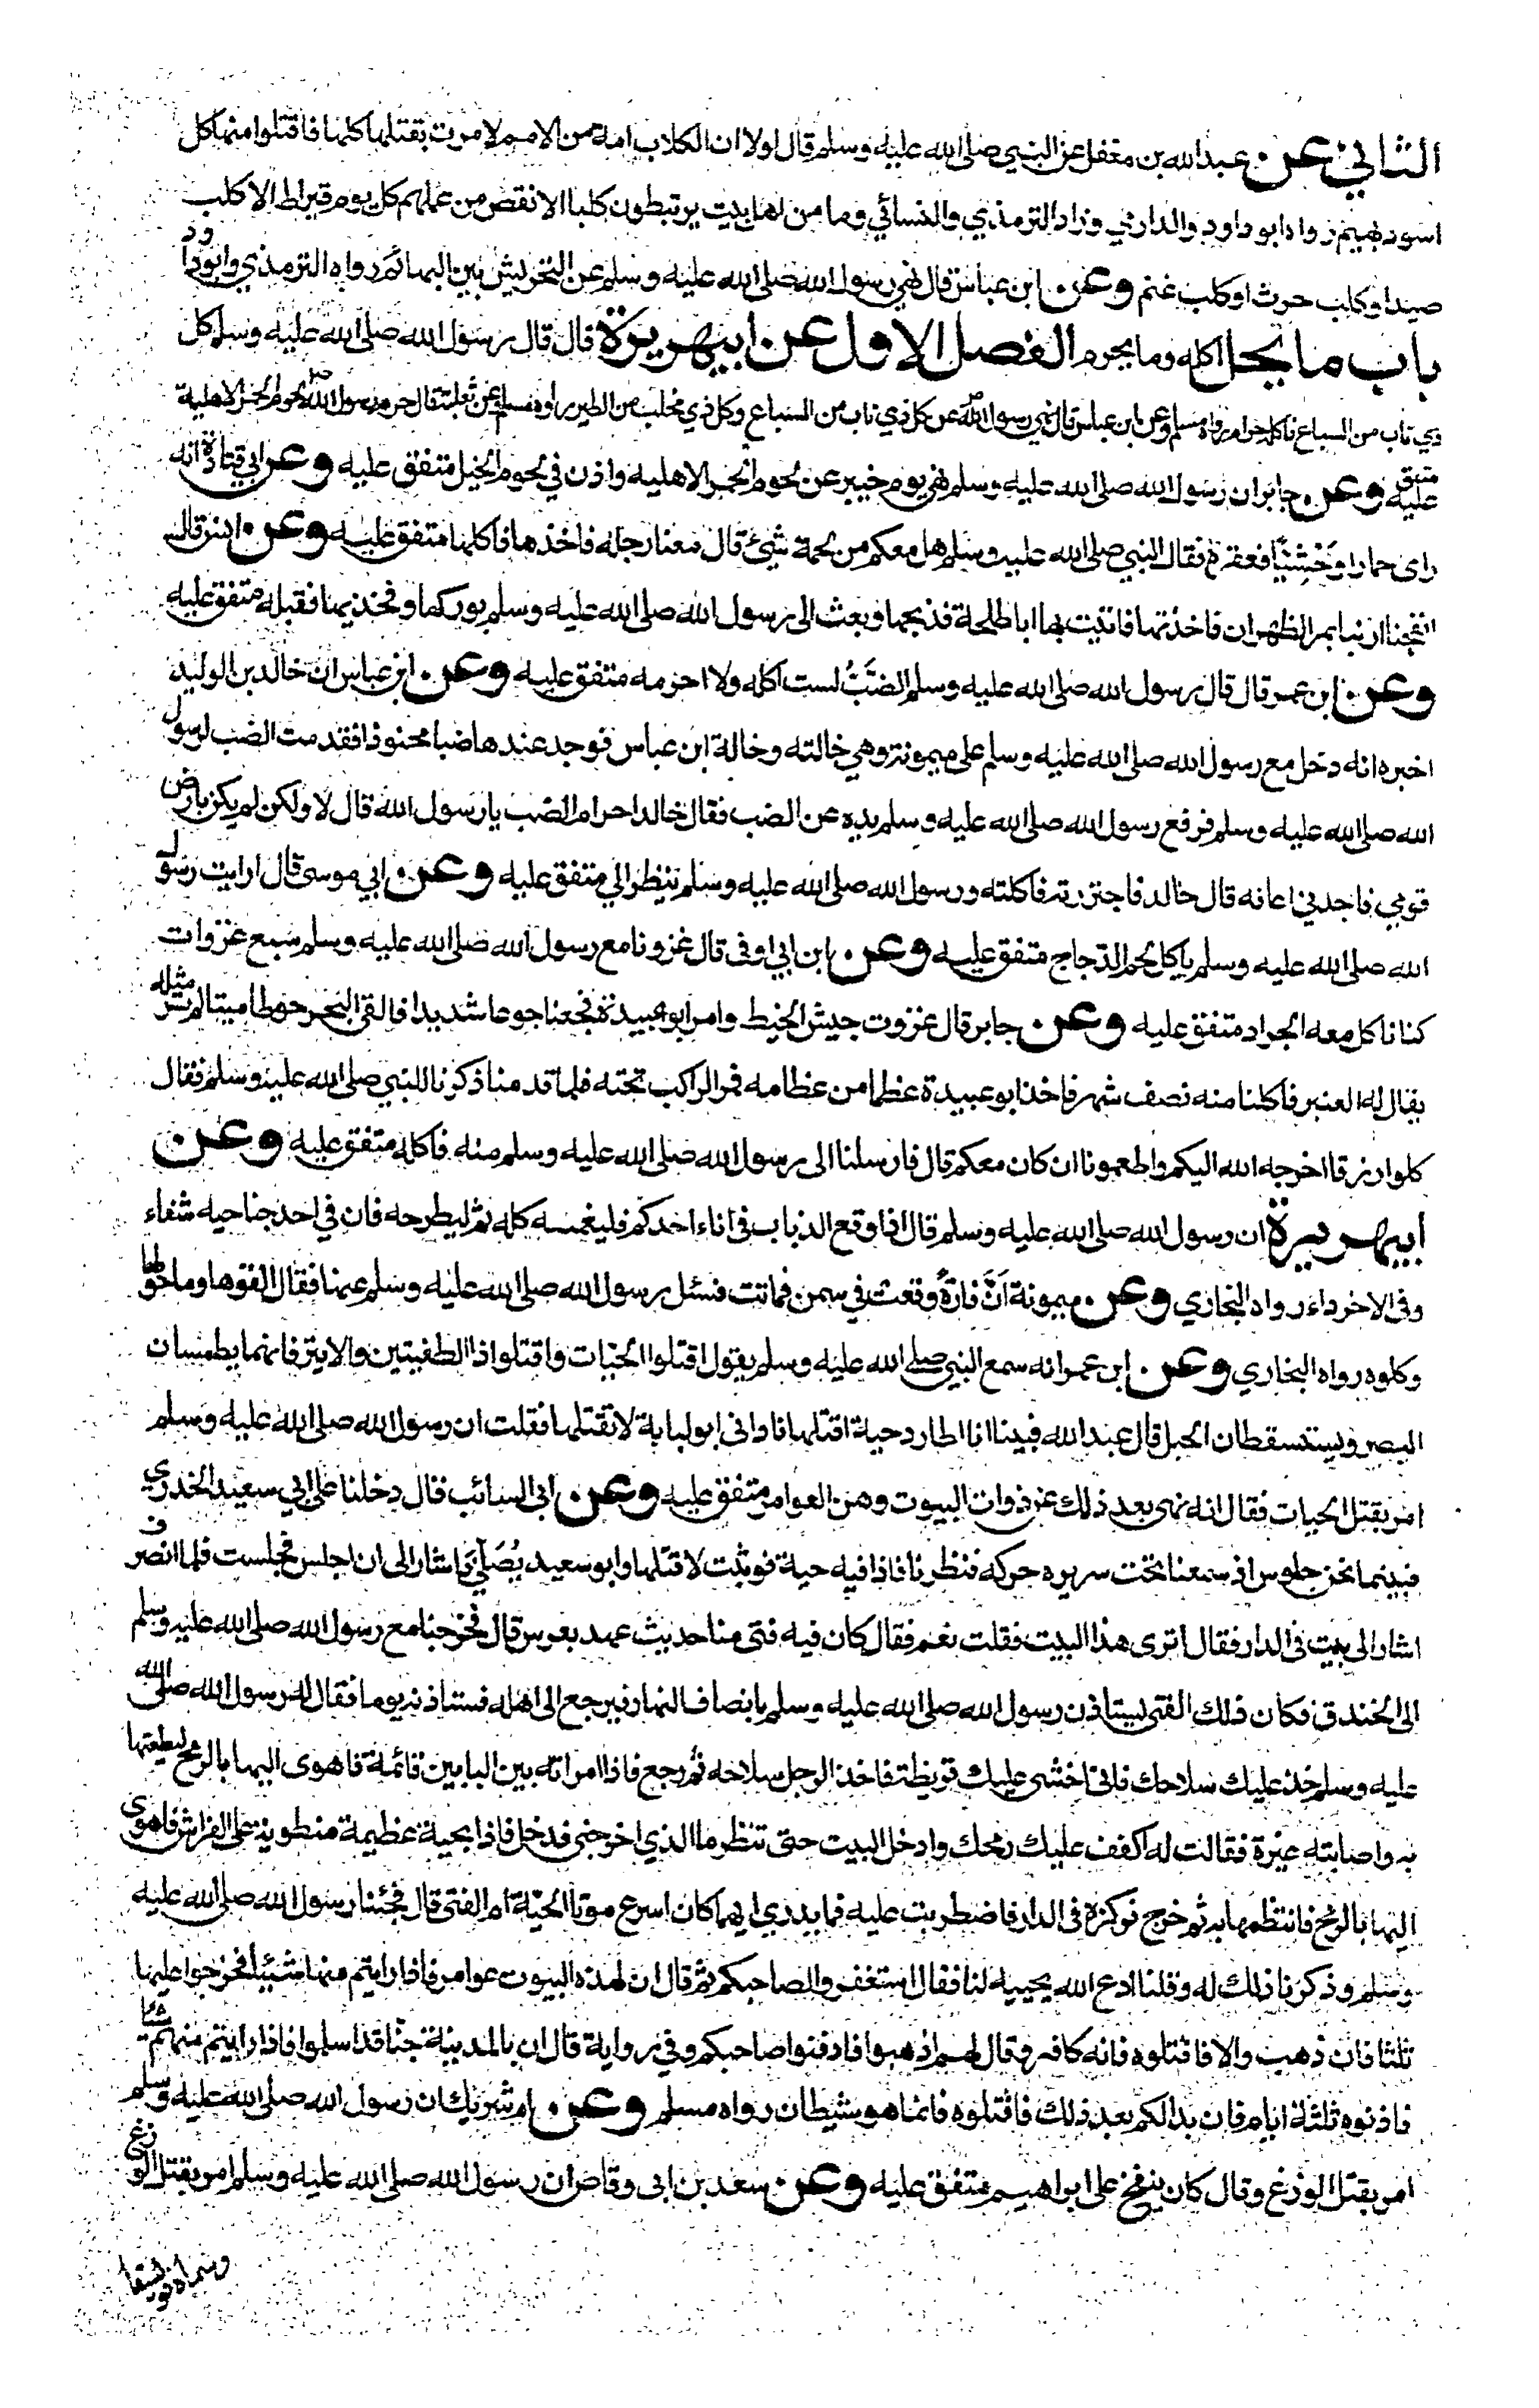 الثاني عن عبد الله بن مغفل عن النبي صلى الله عليه وسلم قال لولا ان الكلاب امة من الامم لامرت بقتلها كلها فاقتلوا منها كل
اسود بهيم رواه ابو داود والدارمي وزاد الترمذي والنسائي وما من اهل بيت يرتبطون كلبا الا نقص من عملهم كل يوم قيراط الا كلب
صيد او كلب حرث او كلب غنم وعن ابن عباس قال نهى رسول الله صلى الله عليه وسلم عن التحريش بين البهائم رواه الترمذي وابو داود
باب ما يحل اكله وما يحرم الفصل الاول عن ابي هريرة قال قال رسول الله صلى الله عليه وسلم كل
ذي ناب من السباع فاكله حرام رواه مسلم وعن ابن عباس قال نهى رسول الله عن كل ذي ناب من السباع وكل ذي مخلب من الطير رواه مسلم وعن ثعلبة قال حرم رسول الله صلى لحوم الحمر الاهلية
متفق عليه وعن جابر ان رسول الله صلى الله عليه وسلم نهى يوم خيبر عن لحوم الحمر الاهلية واذن في لحوم الخيل متفق عليه وعن ابي قتادة انه
راى حمارا وَحْشِيًّا فعقره فقال النبي صلى الله عليه وسلم هل معكم من لحمه شيئ قال معنا رجله فاخذها فاكلها متفق عليه وعن انس قال
انفجنا ارنبا بمر الظهران فاخذتها فاتيت بها ابا طلحة فذبحها وبعث الى رسول الله صلى الله عليه وسلم بوركها وفخذيها فقبله متفق عليه
وعن ابن عمر قال قال رسول الله صلى الله عليه وسلم الضَّبُّ لست آكله ولا احرمه متفق عليه وعن ابن عباس ان خالد بن الوليد
اخبره انه دخل مع رسول الله صلى الله عليه وسلم على ميمونة وهي خالته وخالة ابن عباس فوجد عندها ضبا محنوذا فقدمت الضب لرسول
الله صلى الله عليه وسلم فرفع رسول الله صلى الله عليه وسلم يده عن الضب فقال خالد احرام الضب يا رسول الله قال لا ولكن لم يكن بارض
قومي فاجدني اعافه قال خالد فاجتررته فاكلته ورسول الله صلى الله عليه وسلم ينظر الي متفق عليه وعن ابي موسى قال ارايت رسول
الله صلى الله عليه وسلم ياكل لحم الدجاج متفق عليه وعن ابن ابي اوفى قال غزونا مع رسول الله صلى الله عليه وسلم سبع غزوات
كنا ناكل معه الجراد متفق عليه وعن جابر قال غزوت جيش الخبط وامر ابو عبيدة فجعنا جوعا شديدا فالقى البحر حوطا ميتا لم نر مثله
يقال له العنبر فاكلنا منه نصف شهر فاخذ ابو عبيدة عظما من عظامه فمر الراكب تحته فلما قدمنا ذكرنا للنبي صلى الله عليه وسلم فقال
كلوا رزقا اخرجه الله اليكم واطعمونا ان كان معكم قال فارسلنا الى رسول الله صلى الله عليه وسلم منه فاكله متفق عليه وعن
ابي هريرة ان رسول الله صلى الله عليه وسلم قال اذا وقع الذباب في اناء احدكم فليغمسه كله ثم ليطرحه فان في احد جناحيه شفاء
وفي الاخر داء رواه البخاري وعن ميمونة اَنَّ فارةً وقعت في سمن فماتت فسئل رسول الله صلى الله عليه وسلم عنها فقال القوها وما حولها
وكلوه رواه البخاري وعن ابن عمر انه سمع النبي صلى الله عليه وسلم يقول اقتلوا الحيات واقتلوا ذا الطفيتين والابتر فانهما يطمسان
البصر ويستسقطان الحبل قال عبد الله فبينا انا اطارد حية اقتلها ناداني ابو لبابة لا تقتلها فقلت ان رسول الله صلى الله عليه وسلم
امر بقتل الحيات فقال انه نهى بعد ذلك عن ذوات البيوت وهن العوامر متفق عليه وعن ابي السائب قال دخلنا على ابي سعيد الخدري
فبينما نحن جلوس اذ سمعنا تحت سريره حركه فنظرنا فاذا فيه حية فوثبت لاقتلها وابو سعيد يُصَلِّي فاشار الى ان اجلس فجلست فلما انصرف
اشار الى بيت في الدار فقال اترى هذا البيت فقلت نعم فقال كان فيه فتى منا حديث عهد بعرس قال فخرجنا مع رسول الله صلى الله عليه وسلم
الى الخندق فكان ذلك الفتى يستاذن رسول الله صلى الله عليه وسلم بانصاف النهار فيرجع الى اهله فستاذنه يوما فقال له رسول الله صلى الله
عليه وسلم خذ عليك سلاحك فاني اخشى عليك قريظة فاخذ الرجل سلاحه ثم رجع فاذا امراته بين البابين قائمة فاهوى اليها بالرمح ليطعنها
به واصابته غيرة فقالت له اكفف عليك رمحك وادخل البيت حتى تنظر ما الذي اخرجني فدخل فاذا بحية عظيمة منطوية على الفراش فاهوى
اليها بالرمح فانتظمها به ثم خرج فركزه في الدار فاضطربت عليه فما يدري ايهما كان اسرع موتا الحيّة ام الفتى قال فجئنا رسول الله صلى الله عليه
وسلم وذكرنا ذلك له وقلنا ادع الله يحييه لنا فقال استغفروا لصاحبكم ثم قال ان لهذه البيوت عوامر فاذا رايتم منها شيئا فحرجوا عليها
ثلثا فان ذهب والا فاقتلوه فانه كافر وقال لهم اذهبوا فادفنوا صاحبكم وفي رواية قال ان بالمدينة جنّا قد اسلموا فاذا رايتم منهم شيئا
فاذنوه ثلثة ايام فان بدا لكم بعد ذلك فاقتلوه فانما هو شيطان رواه مسلم وعن ام شريك ان رسول الله صلى الله عليه وسلم
امر بقتل الوزغ وقال كان ينفخ على ابراهيم متفق عليه وعن سعد بن ابي وقاص ان رسول الله صلى الله عليه وسلم امر بقتل الوزغ
وسماه فويسقا